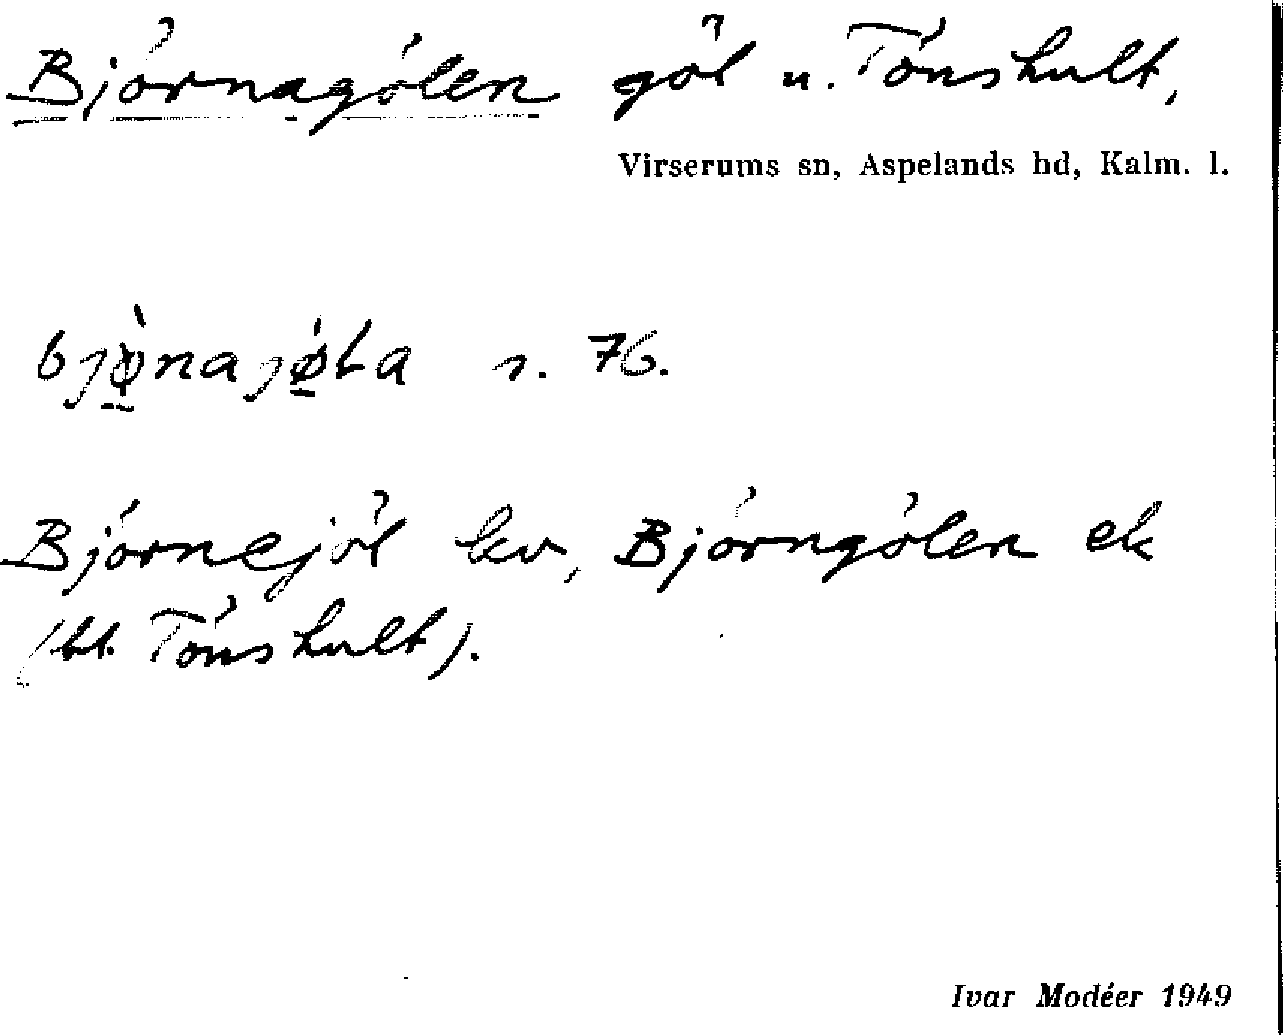 Björnagölen göl u. Tönshult,
Virserums sn, Aspelands hd, Kalm. l.
bjø̠̀najǿ̠La s. 76.
Björnejöl kv, Björngölen ek
(bl. Tönshult).
Ivar Modéer 1949